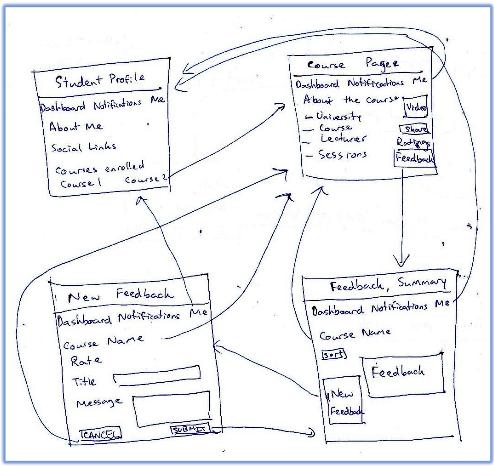 Student Profile
Dashboard Notifications Me
About Me
Social Links
Courses enrolled
Course 1 Course 2
Course Page
Dashboard Notifications Me
About the course
Video
- University
- Course
Share
Lecturer
Ratings
- Sessions
Feedback
New Feedback
Dashboard Notifications Me
Course Name
Rate
Title
Message
CANCEL
SUBMIT
Feedback, Summary
Dashboard Notifications Me
Course Name
Sort
Feedback
New
Feedback